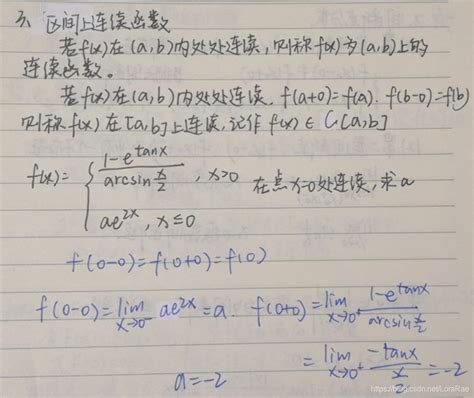 3、区间上连续函数
若f(x)在(a,b)内处处连续,则称f(x)为(a,b)上的
连续函数。
若f(x)在(a,b)内处处连续. f(a+0)=f(a). f(b-0)=f(b)
则称f(x)在[a,b]上连续,记作f(x)∈C[a,b]
f(x)={ (1-e^tanx)/(arcsin x/2), x>0
ae^2x, x≤0 在点x=0处连续,求a
f(0-0)=f(0+0)=f(0)
f(0-0)=lim x→0⁻ ae^2x=a. f(0+0)=lim x→0⁺ (1-e^tanx)/(arcsin x/2)
=lim x→0⁺ (-tanx)/(x/2)=-2
a=-2
https://blog.csdn.net/LoraRae